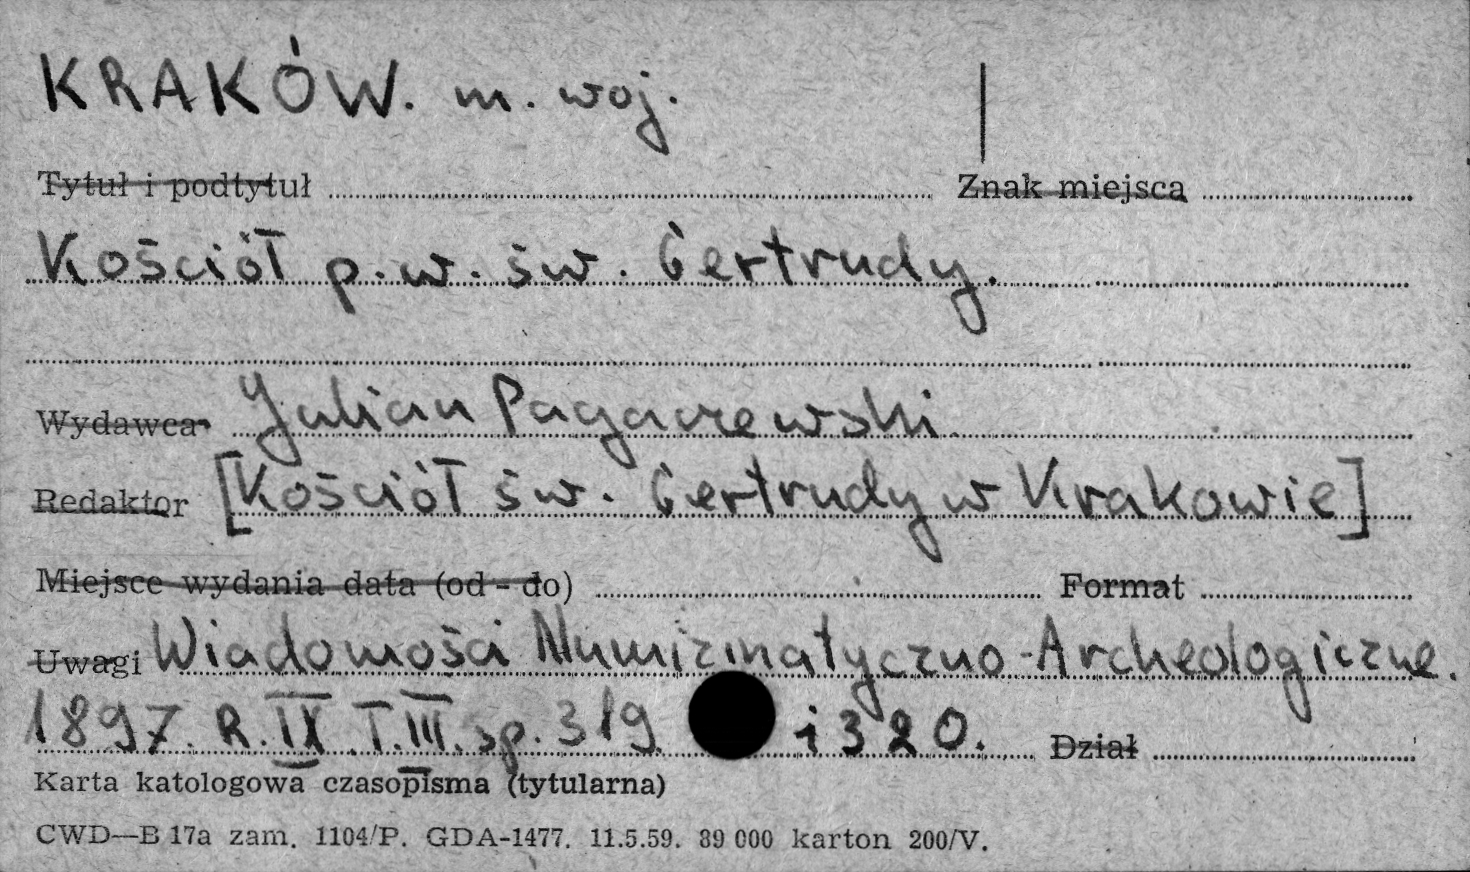 KRAKÓW. m. woj.
Tytuł i podtytuł Znak miejsca
Kościół p.w. św. Gertrudy.
Wydawca Julian Pagaczewski
Redaktor [Kościół św. Gertrudy w Krakowie]
Miejsce wydania data (od - do) Format
Uwagi Wiadomości Numizmatyczno-Archeologiczne.
1897. R. IX T. III. sp. 319 i 320. Dział
Karta katologowa czasopisma (tytularna)
CWD—B 17a zam. 1104/P. GDA-1477. 11.5.59. 89 000 karton 200/V.